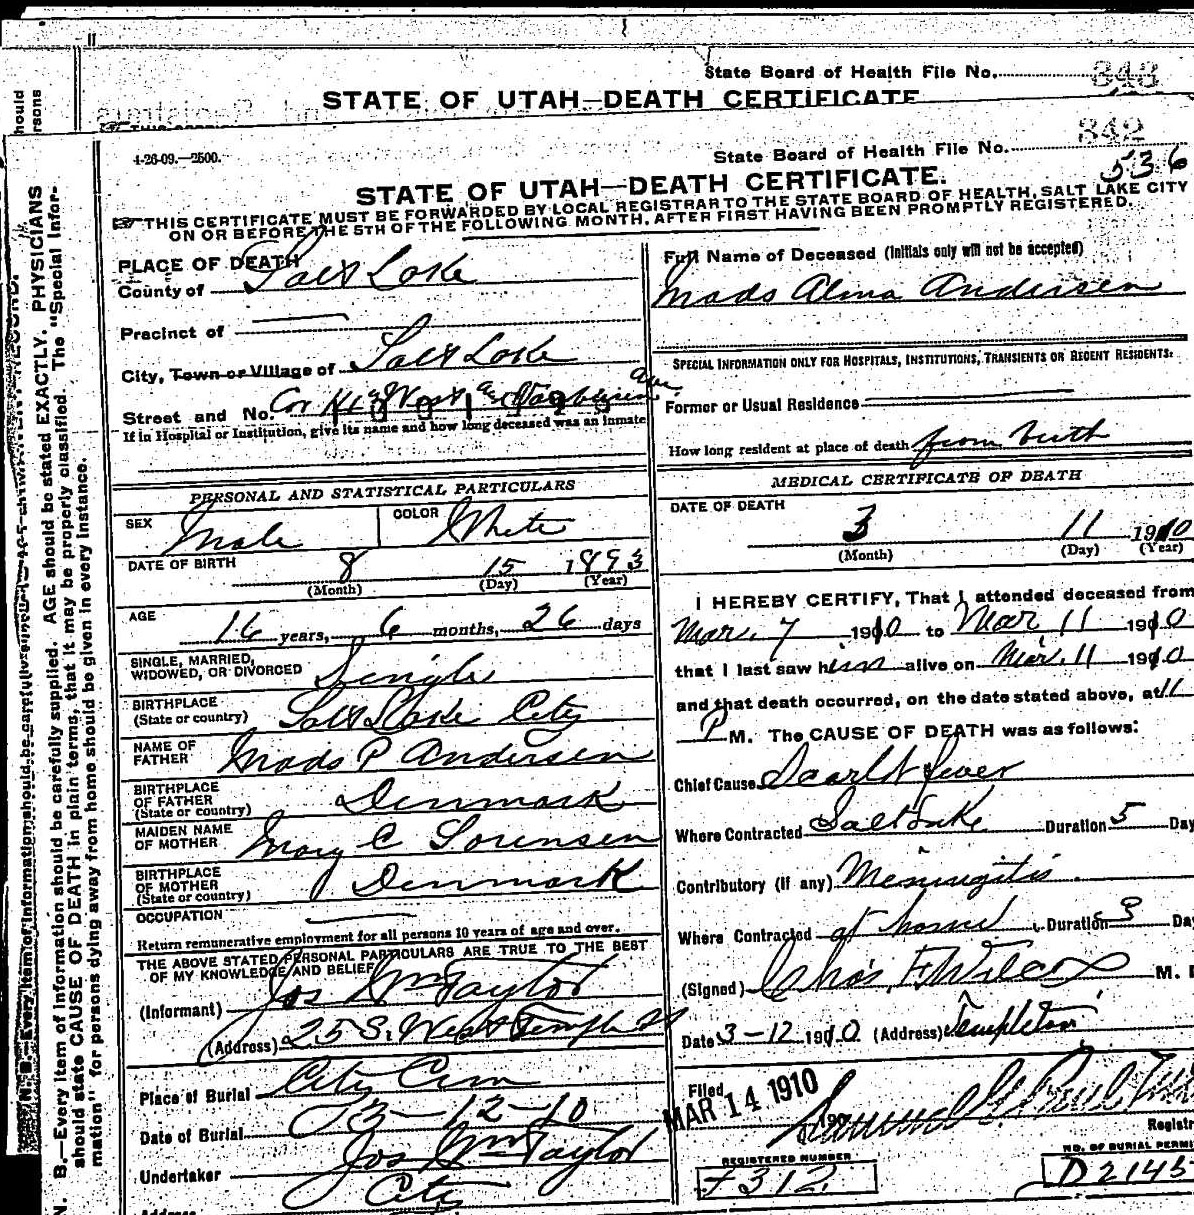 hould
rsons
State Board of Health File No. 343
STATE OF UTAH—DEATH CERTIFICATE
N. B.—Every item of information should be carefully supplied. AGE should be stated EXACTLY. PHYSICIANS
should state CAUSE OF DEATH in plain terms, that it may be properly classified. The "Special Infor-
mation" for persons dying away from home should be given in every instance.
4-26-09.—2500.
State Board of Health File No. 342
536
STATE OF UTAH—DEATH CERTIFICATE.
THIS CERTIFICATE MUST BE FORWARDED BY LOCAL REGISTRAR TO THE STATE BOARD OF HEALTH, SALT LAKE CITY
ON OR BEFORE THE 5TH OF THE FOLLOWING MONTH, AFTER FIRST HAVING BEEN PROMPTLY REGISTERED.
PLACE OF DEATH
County of Salt Lake
Precinct of
City, Town or Village of Salt Lake
Street and No. Cor West
If in Hospital or Institution, give its name and how long deceased was an inmate
PERSONAL AND STATISTICAL PARTICULARS
SEX Male COLOR White
DATE OF BIRTH 8 15 1893
(Month) (Day) (Year)
AGE 16 years, 6 months, 26 days
SINGLE, MARRIED,
WIDOWED, OR DIVORCED Single
BIRTHPLACE
(State or country) Salt Lake City
NAME OF
FATHER Mads P Andersen
BIRTHPLACE
OF FATHER
(State or country) Denmark
MAIDEN NAME
OF MOTHER Mary C Sorensen
BIRTHPLACE
OF MOTHER
(State or country) Denmark
OCCUPATION
Return remunerative employment for all persons 10 years of age and over.
THE ABOVE STATED PERSONAL PARTICULARS ARE TRUE TO THE BEST
OF MY KNOWLEDGE AND BELIEF
(Informant) Jos Wm Taylor
(Address) 25 S. West Temple St
Place of Burial City Cem
Date of Burial 3-12-10
Undertaker Jos Wm Taylor
Address City
Full Name of Deceased (Initials only will not be accepted)
Mads Alma Andersen
SPECIAL INFORMATION ONLY FOR HOSPITALS, INSTITUTIONS, TRANSIENTS OR RECENT RESIDENTS:
Former or Usual Residence
How long resident at place of death from birth
MEDICAL CERTIFICATE OF DEATH
DATE OF DEATH
3 11 1910
(Month) (Day) (Year)
I HEREBY CERTIFY, That I attended deceased from
Mar. 7 1910 to Mar 11 1910
that I last saw him alive on Mar. 11 1910
and that death occurred, on the date stated above, at 11
P M. The CAUSE OF DEATH was as follows:
Chief Cause Scarlet fever
Where Contracted Salt Lake Duration 5 Day
Contributory (if any) Meningitis
Where Contracted at home Duration 3 Da
(Signed) Chas. F. Wilcox M. D
Date 3-12 1910 (Address) Templeton
Filed MAR 14 1910
Registr
REGISTERED NUMBER
312
NO. OF BURIAL PERMI
D2145